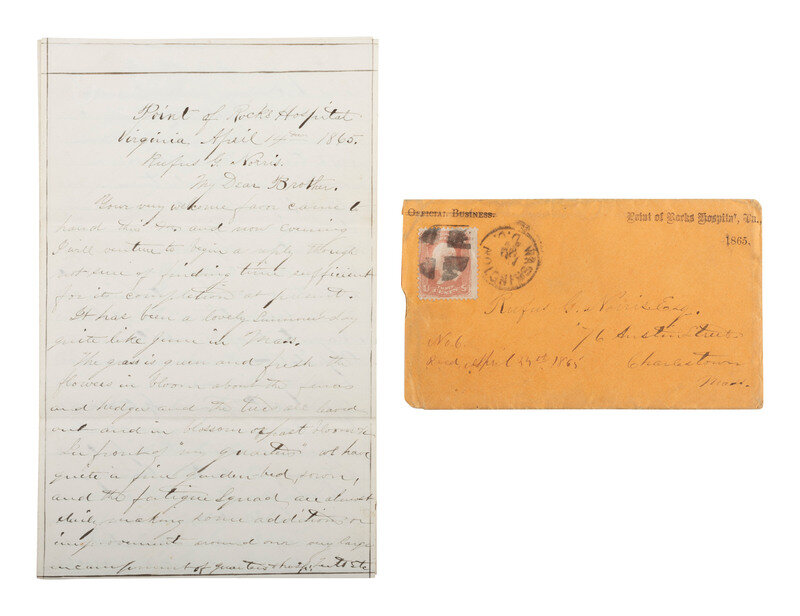 Point of Rocks Hospital
Virginia. April 14th 1865.
Rufus G. Norris.
My Dear Brother.
Your very welcome favor came to
hand this and now evening
I will venture to begin a reply though
not sure of finding time sufficient
for its completion at present.
It has been a lovely Summer day
quite like June in Mass.
The grass is green and fresh the
flowers in bloom about the
and hedges and the trees are leaved
out and in blossom or past bloom
In front of "my quarters" I have
quite a fine garden bed, sown,
and the fatigue squad are almost
daily making some addition or
improvement around our very large
encampment of quarters &c
OFFICIAL BUSINESS.
Point of Rocks Hospital, Va.,
1865.
WASHINGTON D.C.
Rufus G. Norris Esq.
No 6.
76 Austin Street
Recd April 24th 1865
Charlestown
Mass.